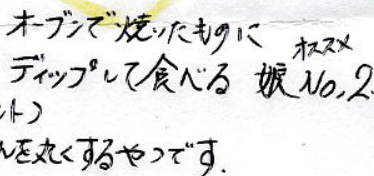 オーブンで焼いたものに
オススメ
ディップして食べる 娘No,2.
ント)
んを丸くするやつです.